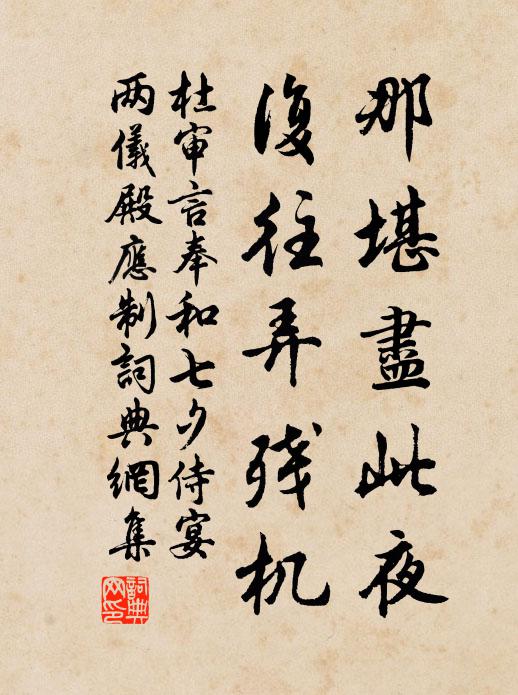 那堪盡此夜
復往弄残机
杜审言奉和七夕侍宴
两儀殿應制詞典網集
詞典网印